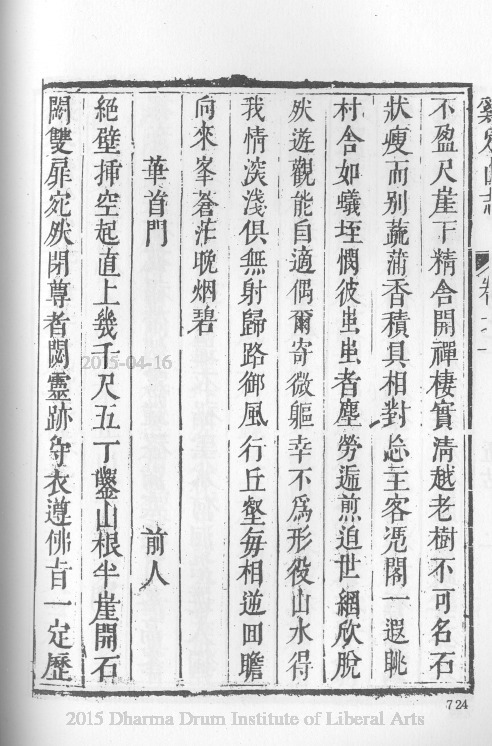 不盈尺崖下精舍開禪棲實清越老樹不可名石
狀瘦而別蔬蒲香積具相對忘主客憑閣一遐眺
村舍如蟻垤憫彼蚩蚩者塵勞遞煎迫世網欣脫
然遊觀能自適偶爾寄微軀幸不為形役山水得
我情淡淺俱無射歸路御風行丘壑每相逆回瞻
向來峯蒼茫晚烟碧
華首門　前人
絕壁揷空起直上幾千尺五丁鑿山根半崖開石
闕雙扉宛然閉尊者閟靈跡守衣遵佛旨一定歷
724
2015-04-16
2015 Dharma Drum Institute of Liberal Arts